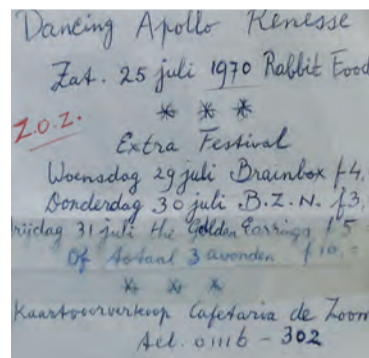 Dancing Apollo Renesse
Zat. 25 juli 1970 Rabbit Food
* * *
Z.O.Z.
Extra Festival
Woensdag 29 juli Brainbox f 4,
Donderdag 30 juli B.Z.N. f 3,
rijdag 31 juli the Golden Earrings f 5
Of totaal 3 avonden f 10,=
* * *
Kaartvoorverkoop Cafetaria de Zoom
tel. 01116 - 302